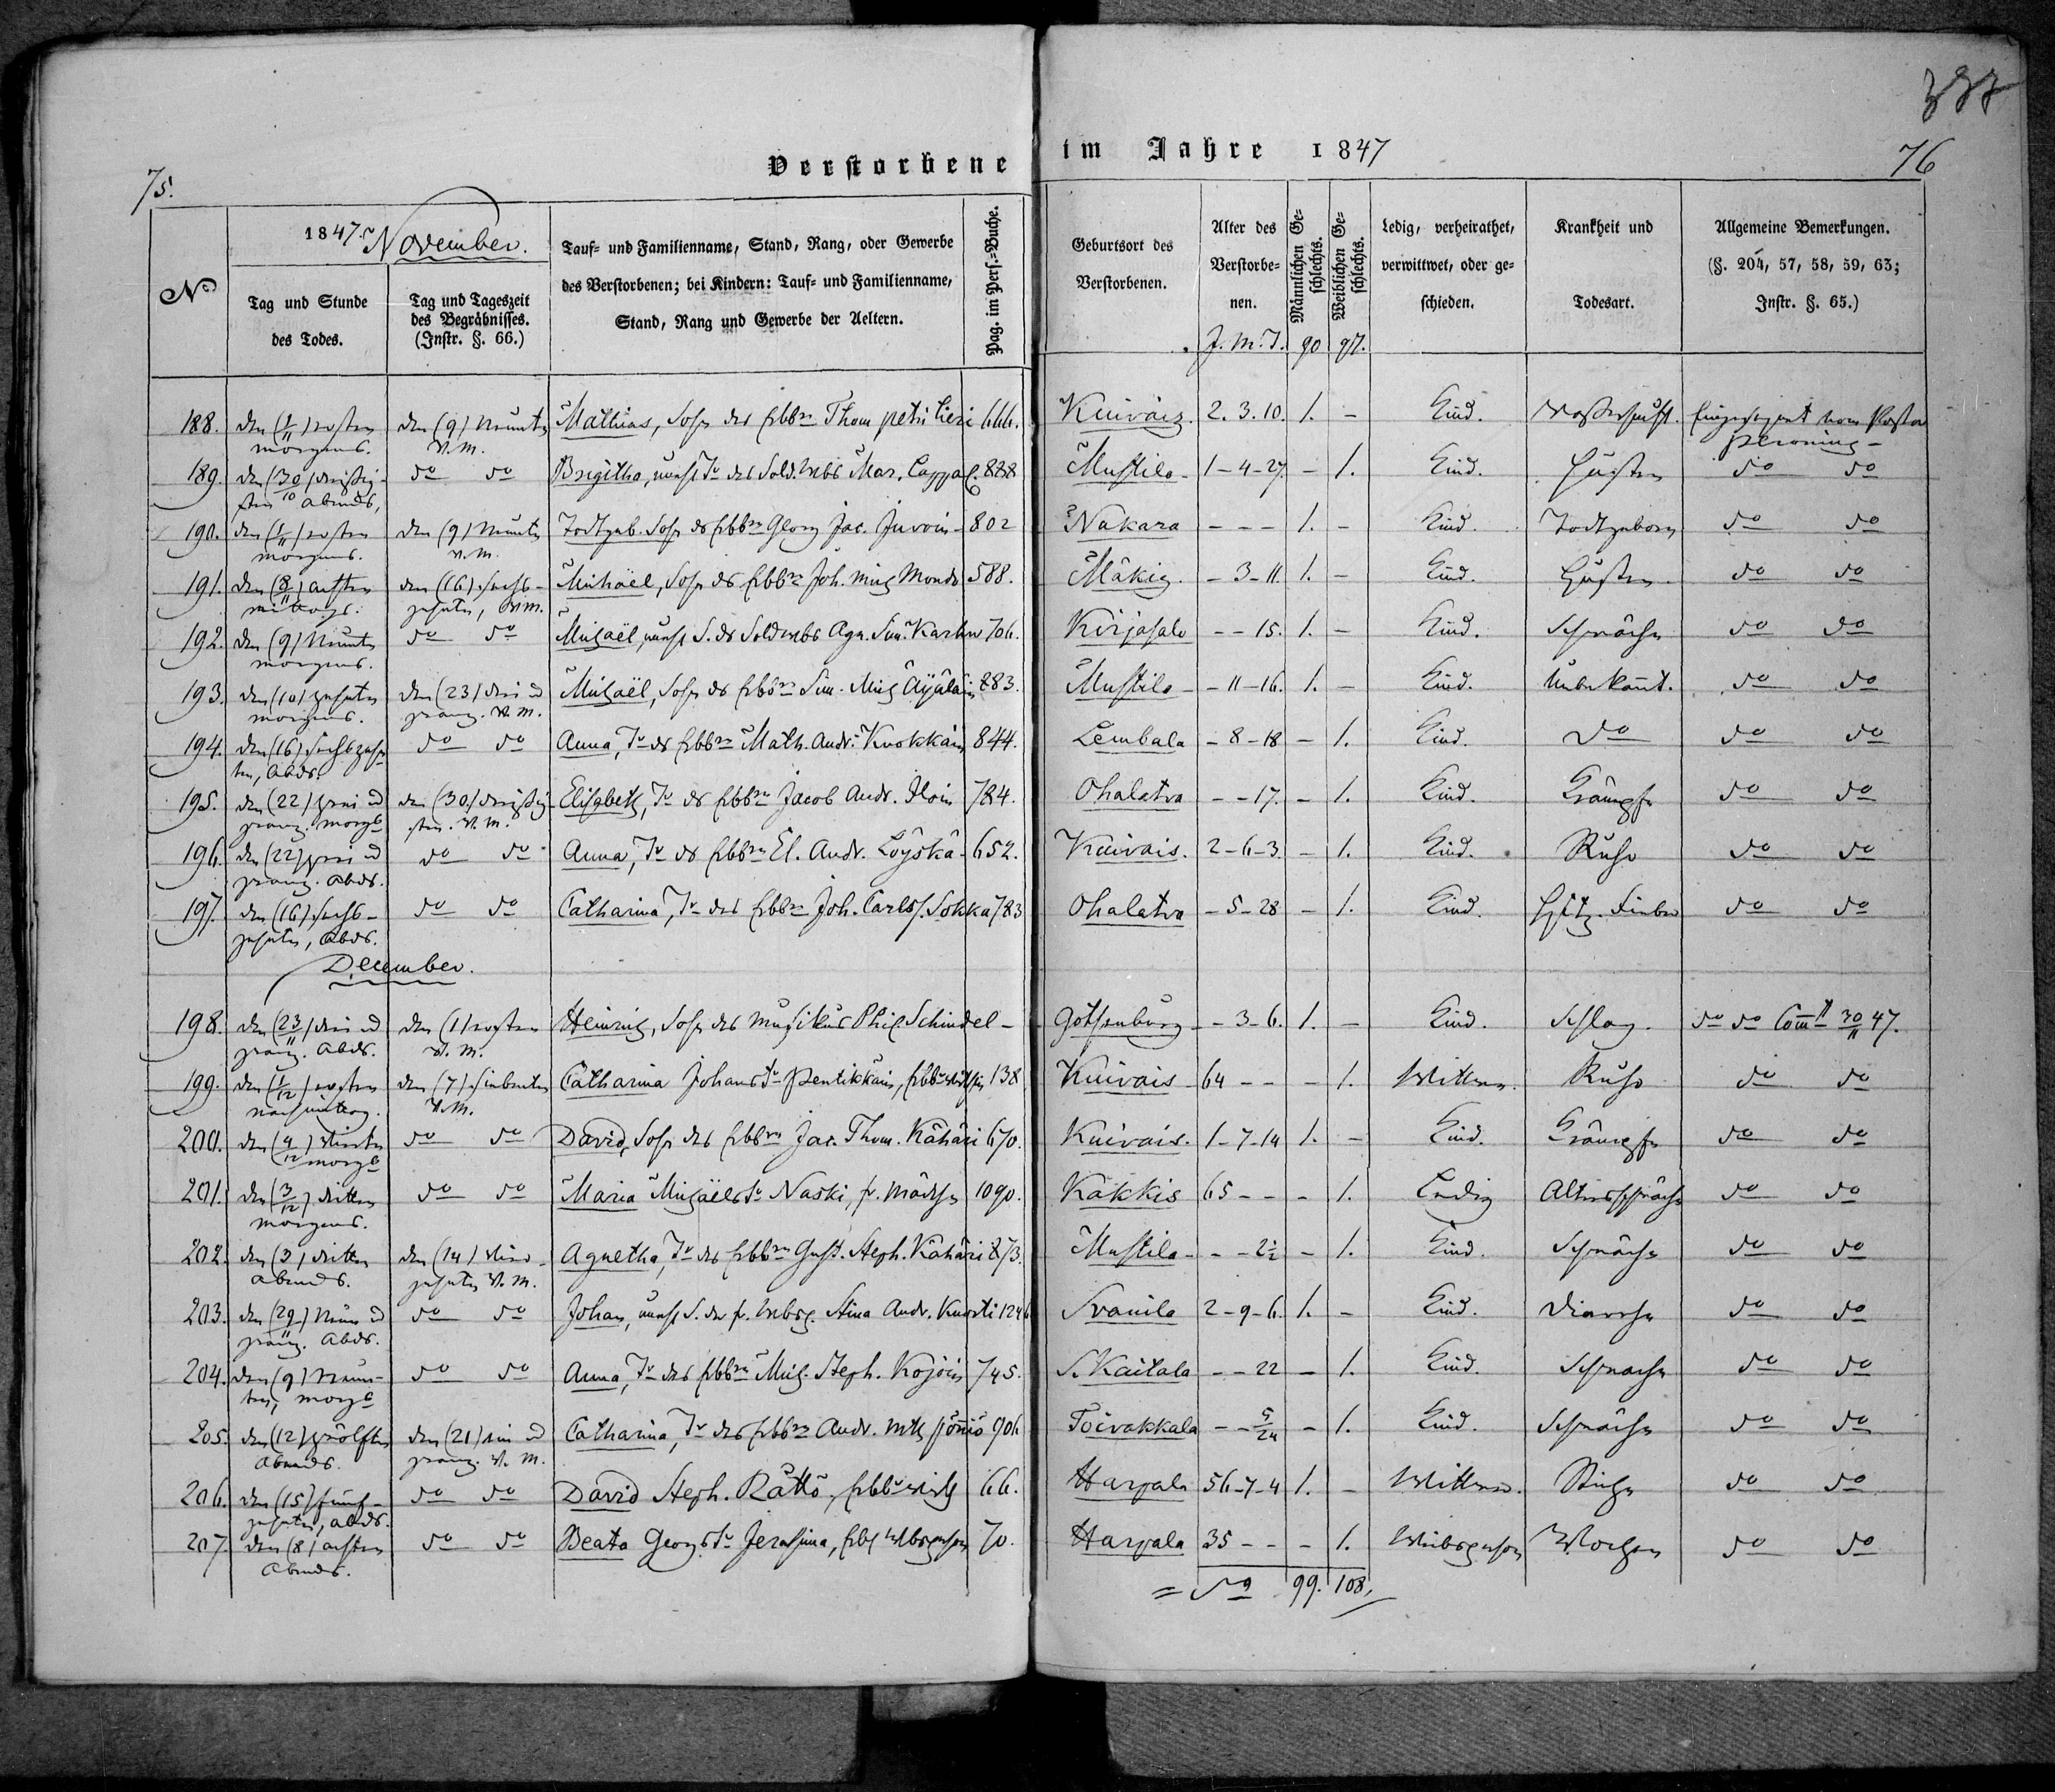 Verstorbene im Jahre 1847
75.
76
No
1847. November.
Tag und Stunde des Todes.
Tag und Tageszeit des Begräbnisses. (Instr. §. 66.)
Tauf= und Familienname, Stand, Rang, oder Gewerbe
des Verstorbenen; bei Kindern: Tauf= und Familienname,
Stand, Rang und Gewerbe der Aeltern.
Pag. im Pers.=Buche.
Geburtsort des Verstorbenen.
Alter des Verstorbe= nen.
Männlichen Ge= schlechts.
Weiblichen Ge= schlechts.
Ledig, verheirathet, verwittwet, oder ge= schieden.
Krankheit und Todesart.
Allgemeine Bemerkungen.
(§. 204, 57, 58, 59, 63;
Instr. §. 65.)
J. M. T. 90 97.
188. den (1/11) ersten morgens. den (9) neunten V. M. Mathias, Sohn des Thom Petri 666. Kuiváiz. 2. 3. 10. 1. - Kind. Wassersucht. Eingesegnet vom Pastor
189. den (30/10) dreißigsten abends, do do Brigitha, unehl Tr des Sold. Wbs Mar. Cappal. 828 Mustila 1-4-27. - 1. Kind. Husten do do
190. den (1/11) ersten morgens. den (9) neunten V. M. Todtgeb. Sohn ds Georg Jac. Juvoin 802 Nakara - - - 1. - Kind Todtgeboren do do
191. den (8/11) achten mittags. den (16) sechszehnten, V. M. Michaël, Sohn ds Joh. Mich Mondo 588. Mäkig. - 3-11. 1. - Kind. Husten. do do
192. den (9) neunten morgens. do do Michaël, unehl S. ds Soldwbs Agn. Sim. Karhu 706. Kirjasalo - - 15. 1. - Kind. Schwäche do do
193. den (10) zehnten morgens. den (23) drei u zwanz. V. M. Michaël, Sohn ds Sim. Mich Äyjäläin 883. Mustila - 11-16. 1. - Kind. Unbekant. do do
194. den (16) sechszehnten, Abds. do do Anna, Tr ds Math. Andr. Kvokkáin 844. Lembala - 8-18 - 1. Kind. do do do
195. den (22) zwei u zwanz. morgs den (30) dreißigsten. V. M. Elisabeth, Tr ds Jacob Andr. Iloin 784. Ohalatva - - 17. - 1. Kind. Krämpfe do do
196. den (22) zwei u zwanz. Abds. do do Anna, Tr ds El. Andr. Löyskä 652. Kuivais. 2-6-3. - 1. Kind. Ruhr do do
197. den (16) sechszehnten, Abds. do do Catharina, Tr des Joh. Carlss. Sokka 783 Ohalatva - 5-28 - 1. Kind. Hitz. Fieber do do
December.
198. den (23/11) drei u zwanz. Abds. den (1) ersten V. M. Heinrich, Sohn des Musikus Phil Schindel - Gothenburg - 3-6. 1. - Kind. Schlag. do do 30/11 47.
199. den (1/12) ersten nachmittag. den (7) siebenten V. M. Catharina Johans Tr Pentikkäin, 138 Kuivais 64 - - - 1. Wittwe. Ruhr do do
200. den (4/12) vierten morgs do do David, Sohn des Jac. Thom. Kähäri 670. Kuivais. 1-7-14 1. - Kind. Krämpfe do do
201. den (3/12) dritten morgens. do do Maria Michaëls Tr Naski, 1090. Kakkis 65 - - - 1. Ledig Altersschwäche do do
202. den (3) dritten abends. den (14) vierzehnten V. M. Agnetha, Tr des Gust. Steph. Kähäri 873. Mustila - - 2½ - 1. Kind. Schwäche do do
203. den (29/11) neun u zwanz. Abds. do do Johan, unehl S. der Stina Andr. 124 Svanila 2-9-6. 1. - Kind. Diarrhe do do
204. den (9) neunten, morgs do do Anna, Tr des Mich. Steph. Kojoin 745. S. Kaitala - - 22 - 1. Kind. Schwäche do do
205. den (12) zwölften Abends. den (21) ein u zwanz. V. M. Catharina, Tr des Andr. Mth 906 Toivakkala - - 5/24 - 1. Kind. Schwäche do do
206. den (15) fünfzehnten, abds. do do David Steph. Rättö, 66. Harpala 56-7-4 1. - Wittwer. Stiche do do
207 den (8) achten Abends. do do Beata Georgs Tr 70. Harpala 35 - - - 1. do do
99. 108,